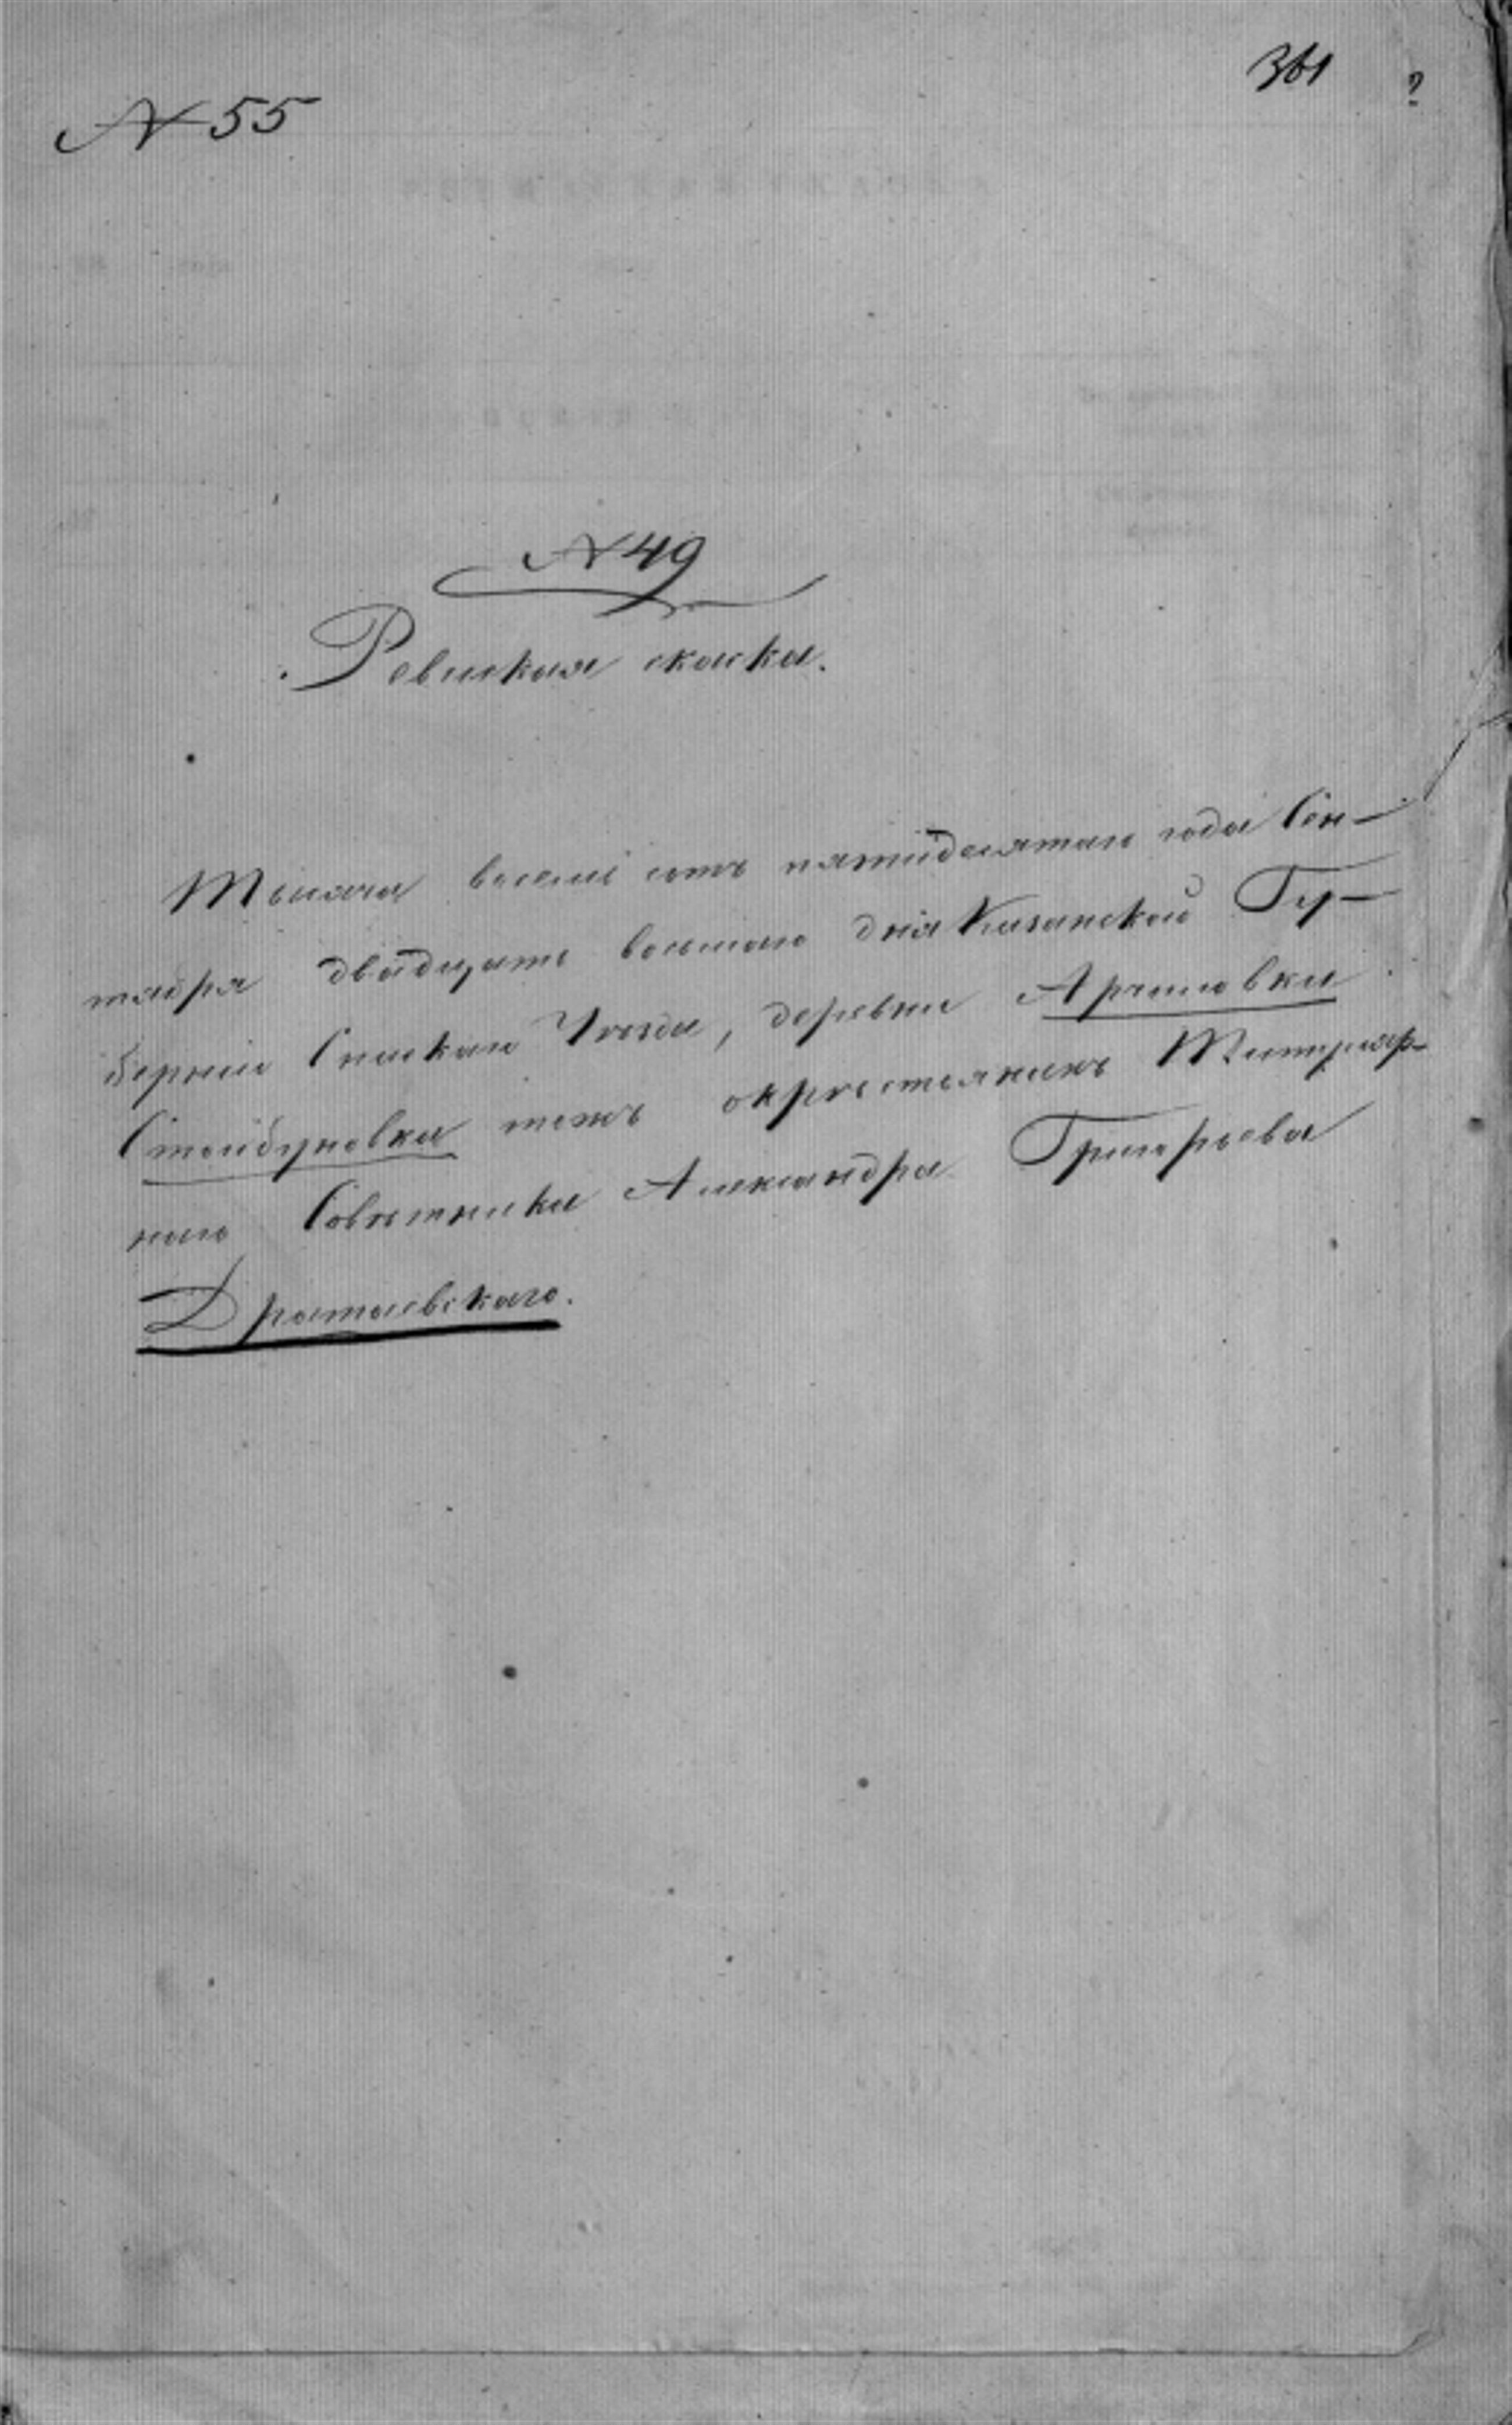 361
№ 55
№ 49
Ревиская скаска.
Тысяча восемь сотъ пятидесятаго года Сен-
тября двадцать восьмаго дня Казанской Гу-
берніи Спаскаго Уезда, деревни Арчиловки
тожъ окрестьянехъ Титуляр-
наго Советника Александра Григорьева